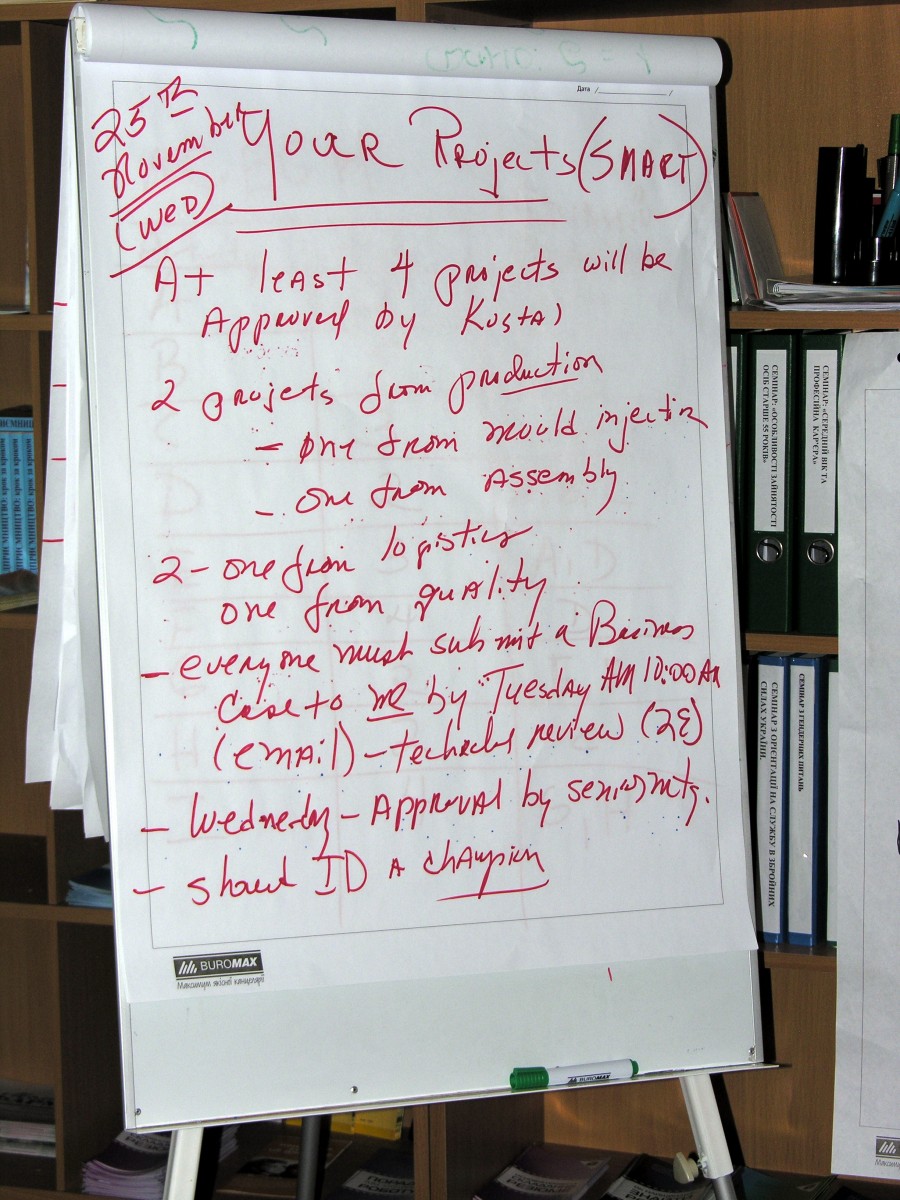 Дата / /
25th
November
(WED)
YOUR PROJECTS (SMART)
At least 4 projects will be
Approved by Kostal
2 projets from production
- One from mould injection
- one from Assembly
2 - one from logistics
one from quality
- everyone must submit a Business
Case to me by Tuesday AM 10:00 AM
(email) - technical review
- Wednesday - Approval by senior mtg.
- Should ID A champion
BUROMAX
Максимум якісної канцелярії
BUROMAX
СЕМІНАР: «ОСОБЛИВОСТІ ЗАЙНЯТОСТІ
ОСІБ СТАРШЕ 55 РОКІВ»
СЕМІНАР: «СЕРЕДНІЙ ВІК ТА
ПРОФЕСІЙНА КАР'ЄРА»
СЕМІНАР З ОРІЄНТАЦІЇ НА СЛУЖБУ В ЗБРОЙНИХ
СИЛАХ УКРАЇНИ.
СЕМІНАР З ГЕНДЕРНИХ ПИТАНЬ